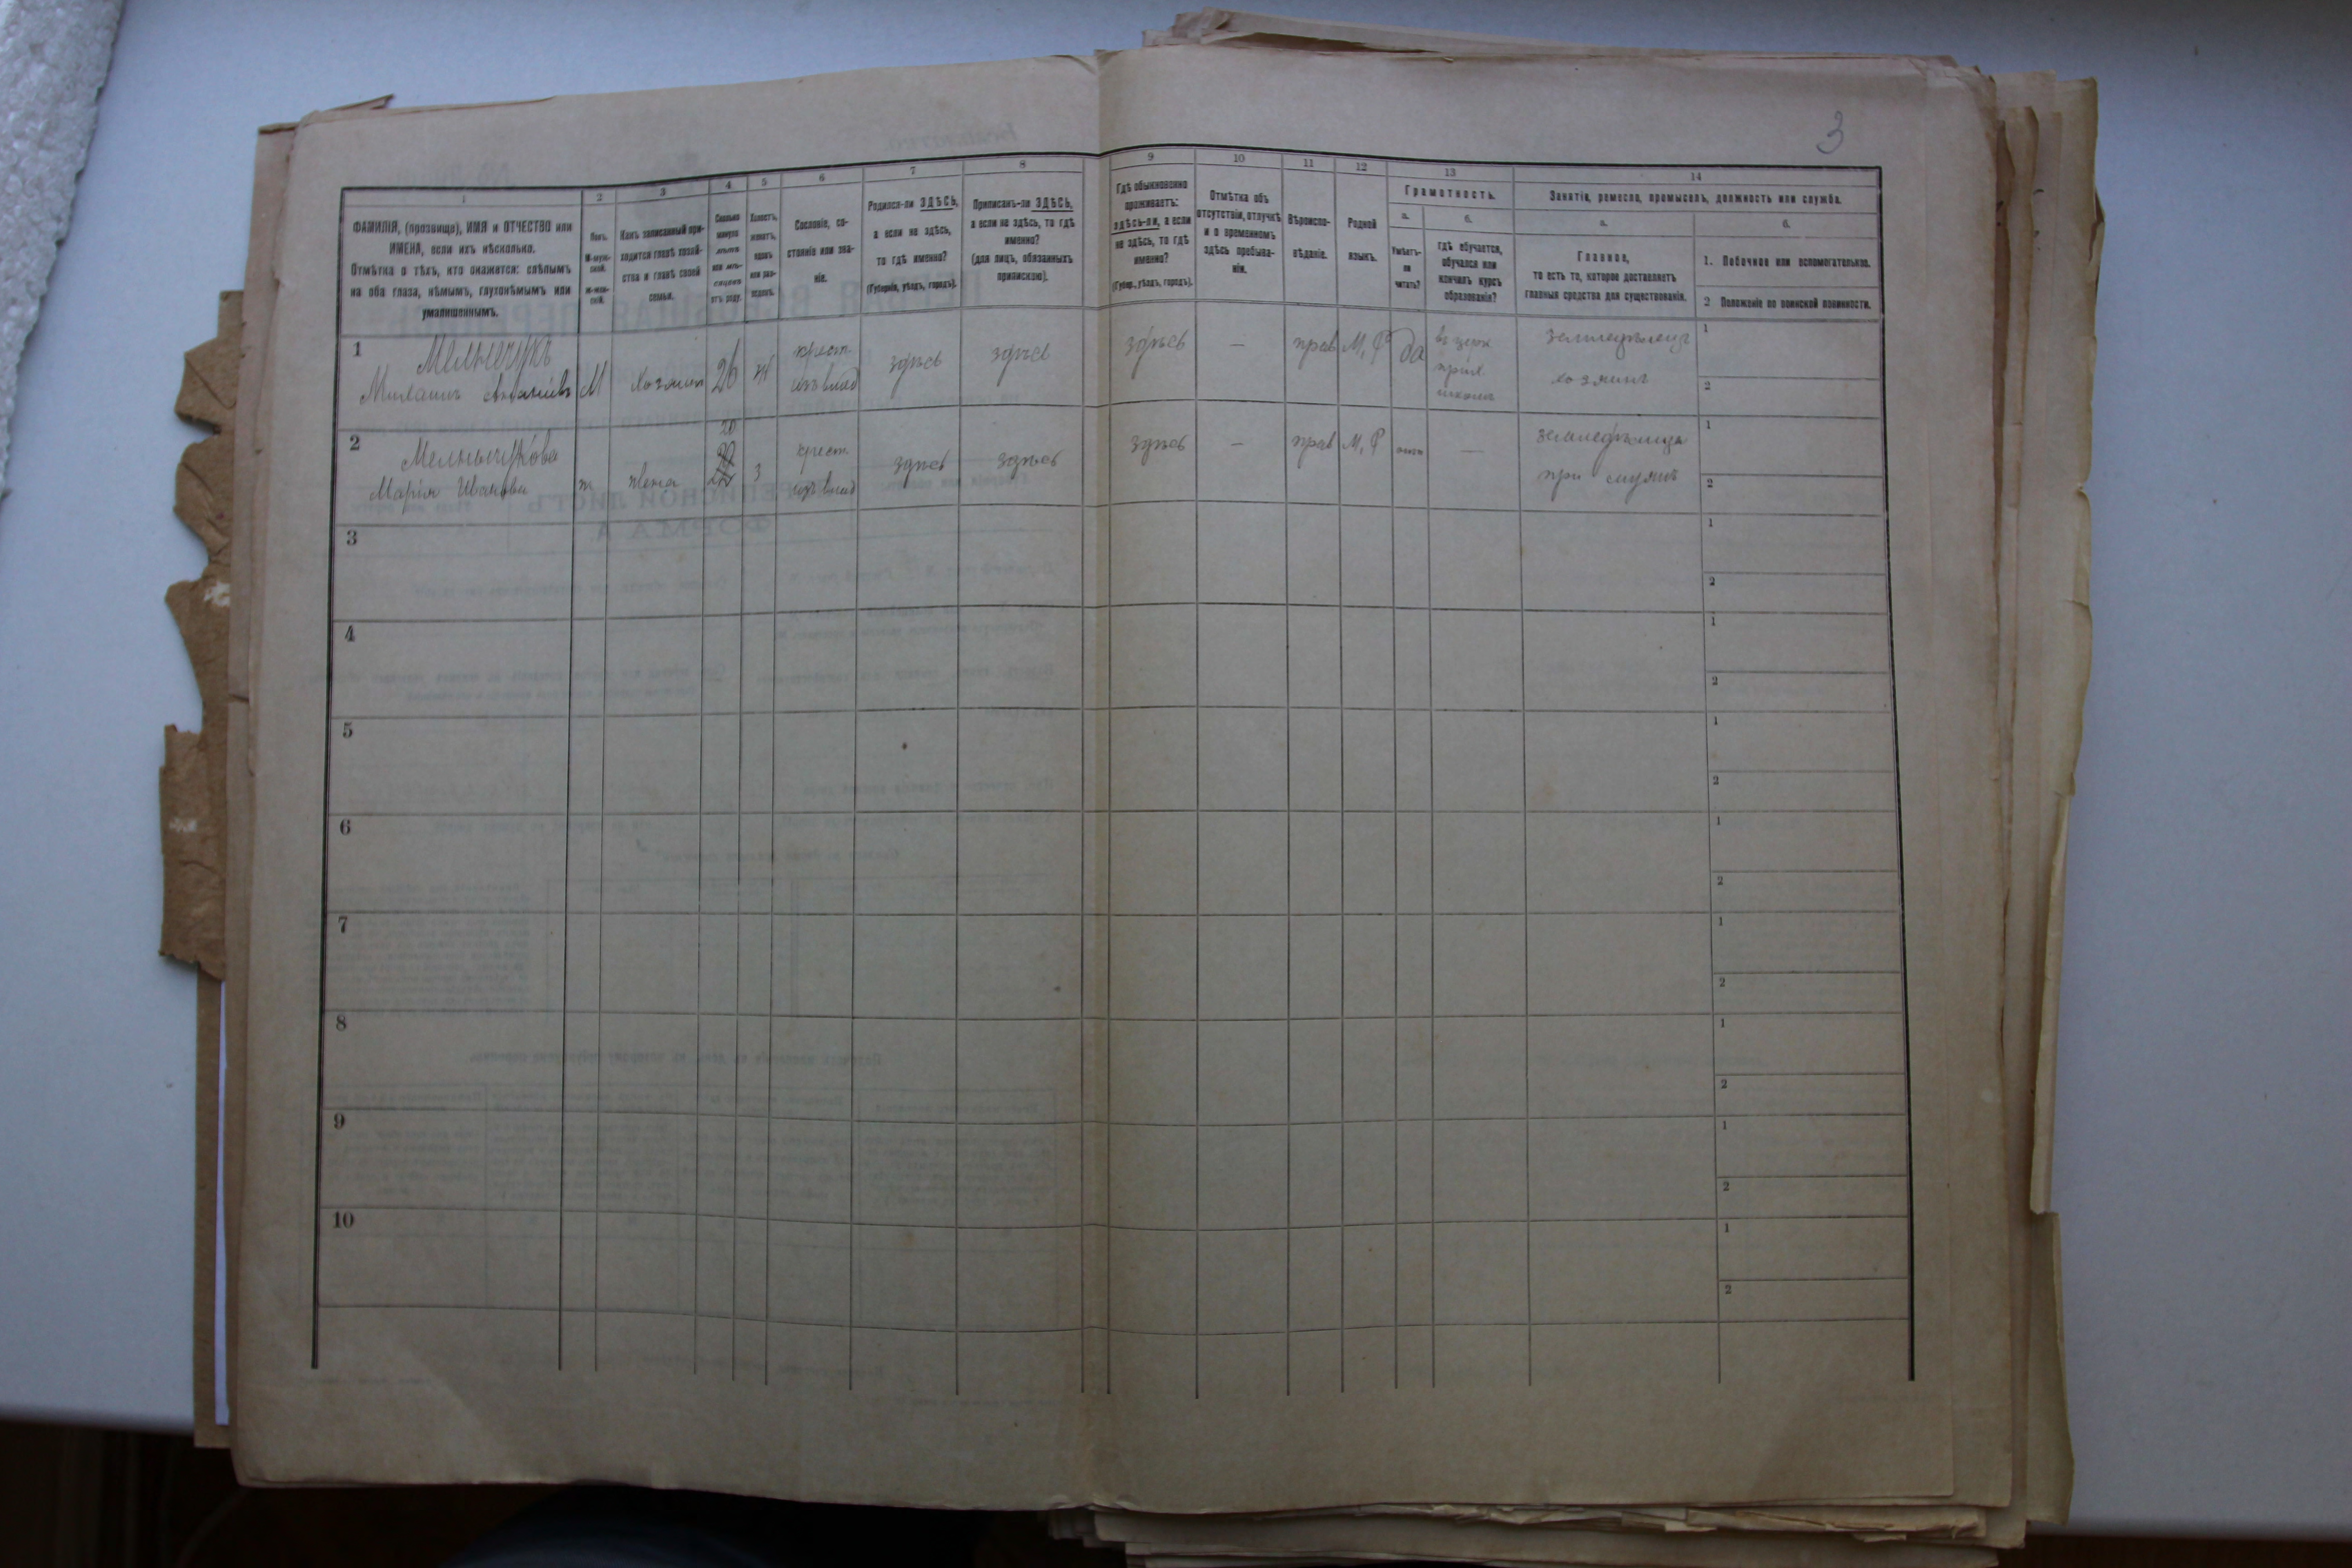 3
1
2
3
4
5
6
7
8
9
10
11
12
13
14
ФАМИЛІЯ, (прозвище), ИМЯ и ОТЧЕСТВО или
ИМЕНА, если ихъ нѣсколько.
Отмѣтка о тѣхъ, кто окажется: слѣпымъ
на оба глаза, нѣмымъ, глухонѣмымъ или
умалишеннымъ.
Полъ.
М-муж-
ской.
ж-жен-
скій.
Какъ записанный при-
ходится главѣ хозяй-
ства и главѣ своей
семьи.
Сколько
минуло
лѣтъ
или мѣ-
сяцевъ
отъ роду.
Холостъ,
женатъ,
вдовъ
или раз-
веденъ.
Сословіе, со-
стояніе или зва-
ніе.
Родился-ли ЗДѢСЬ,
а если не здѣсь,
то гдѣ именно?
(Губернія, уѣздъ, городъ).
Приписанъ-ли ЗДѢСЬ,
а если не здѣсь, то гдѣ
именно?
(для лицъ, обязанныхъ
припискою).
Гдѣ обыкновенно
проживаетъ:
здѣсь-ли, а если
не здѣсь, то гдѣ
именно?
(Губер., уѣздъ, городъ).
Отмѣтка объ
отсутствіи, отлучкѣ
и о временномъ
здѣсь пребыва-
ніи.
Вѣроиспо-
вѣданіе.
Родной
языкъ.
Грамотность.
а.
б.
Умѣетъ-
ли
читать?
гдѣ обучается,
обучался или
кончилъ курсъ
образованія?
Занятіе, ремесло, промыселъ, должность или служба.
а.
б.
Главное,
то есть то, которое доставляетъ
главныя средства для существованія.
1. Побочное или вспомогательное.
2 Положеніе по воинской повинности.
1
Мельничукъ
Михаилъ
М
хозяинъ
26
ж
крест.
изъ влад
здѣсь
здѣсь
здѣсь
—
прав
М, Р
да
въ церк
прих
школѣ
земледѣлецъ
хозяинъ
1
2
2
Мельничукова
Марія Иванова
ж
жена
20
з
крест.
изъ влад
здѣсь
здѣсь
здѣсь
—
прав
М, Р
—
при мужѣ
1
2
3
1
2
4
1
2
5
1
2
6
1
2
7
1
2
8
1
2
9
1
2
10
1
2